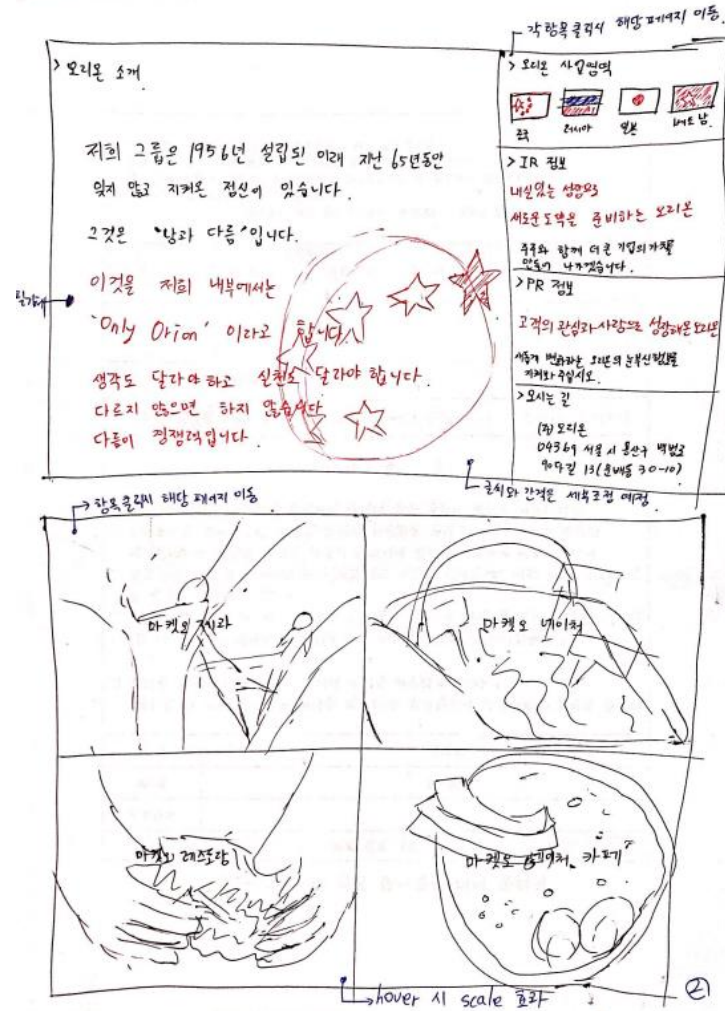 각 항목 클릭시 해당 페이지 이동.
> 오리온 소개
저희 그룹은 1956년 설립된 이래 지난 65년동안
잊지 않고 지켜온 정신이 있습니다.
그것은 "남과 다름"입니다.
이것을 저희 내부에서는
'Only Orion' 이라고 합니다.
생각도 달라야 하고 실천도 달라야 합니다.
다르지 않으면 하지 않습니다
다름이 경쟁력입니다.
> 오리온 사업영역
중국 러시아 일본 베트남
> IR 정보
내실있는 성장으로
새로운 도약을 준비하는 오리온
주주와 함께 더 큰 기업의 가치를
만들어 나가겠습니다.
> PR 정보
고객의 관심과 사랑으로 성장해온 오리온
새롭게 변화하는 오리온의 눈부신 활약을
지켜봐 주십시오.
> 오시는 길
(주) 오리온
04369 서울시 용산구 백범로
90다길 13 (문배동 30-10)
글씨와 간격은 세부조정 예정.
항목 클릭시 해당 페이지 이동
마켓오 제과
마켓오 네이처
마켓오 레스토랑
마켓오 네이처 카페
hover 시 scale 효과
②